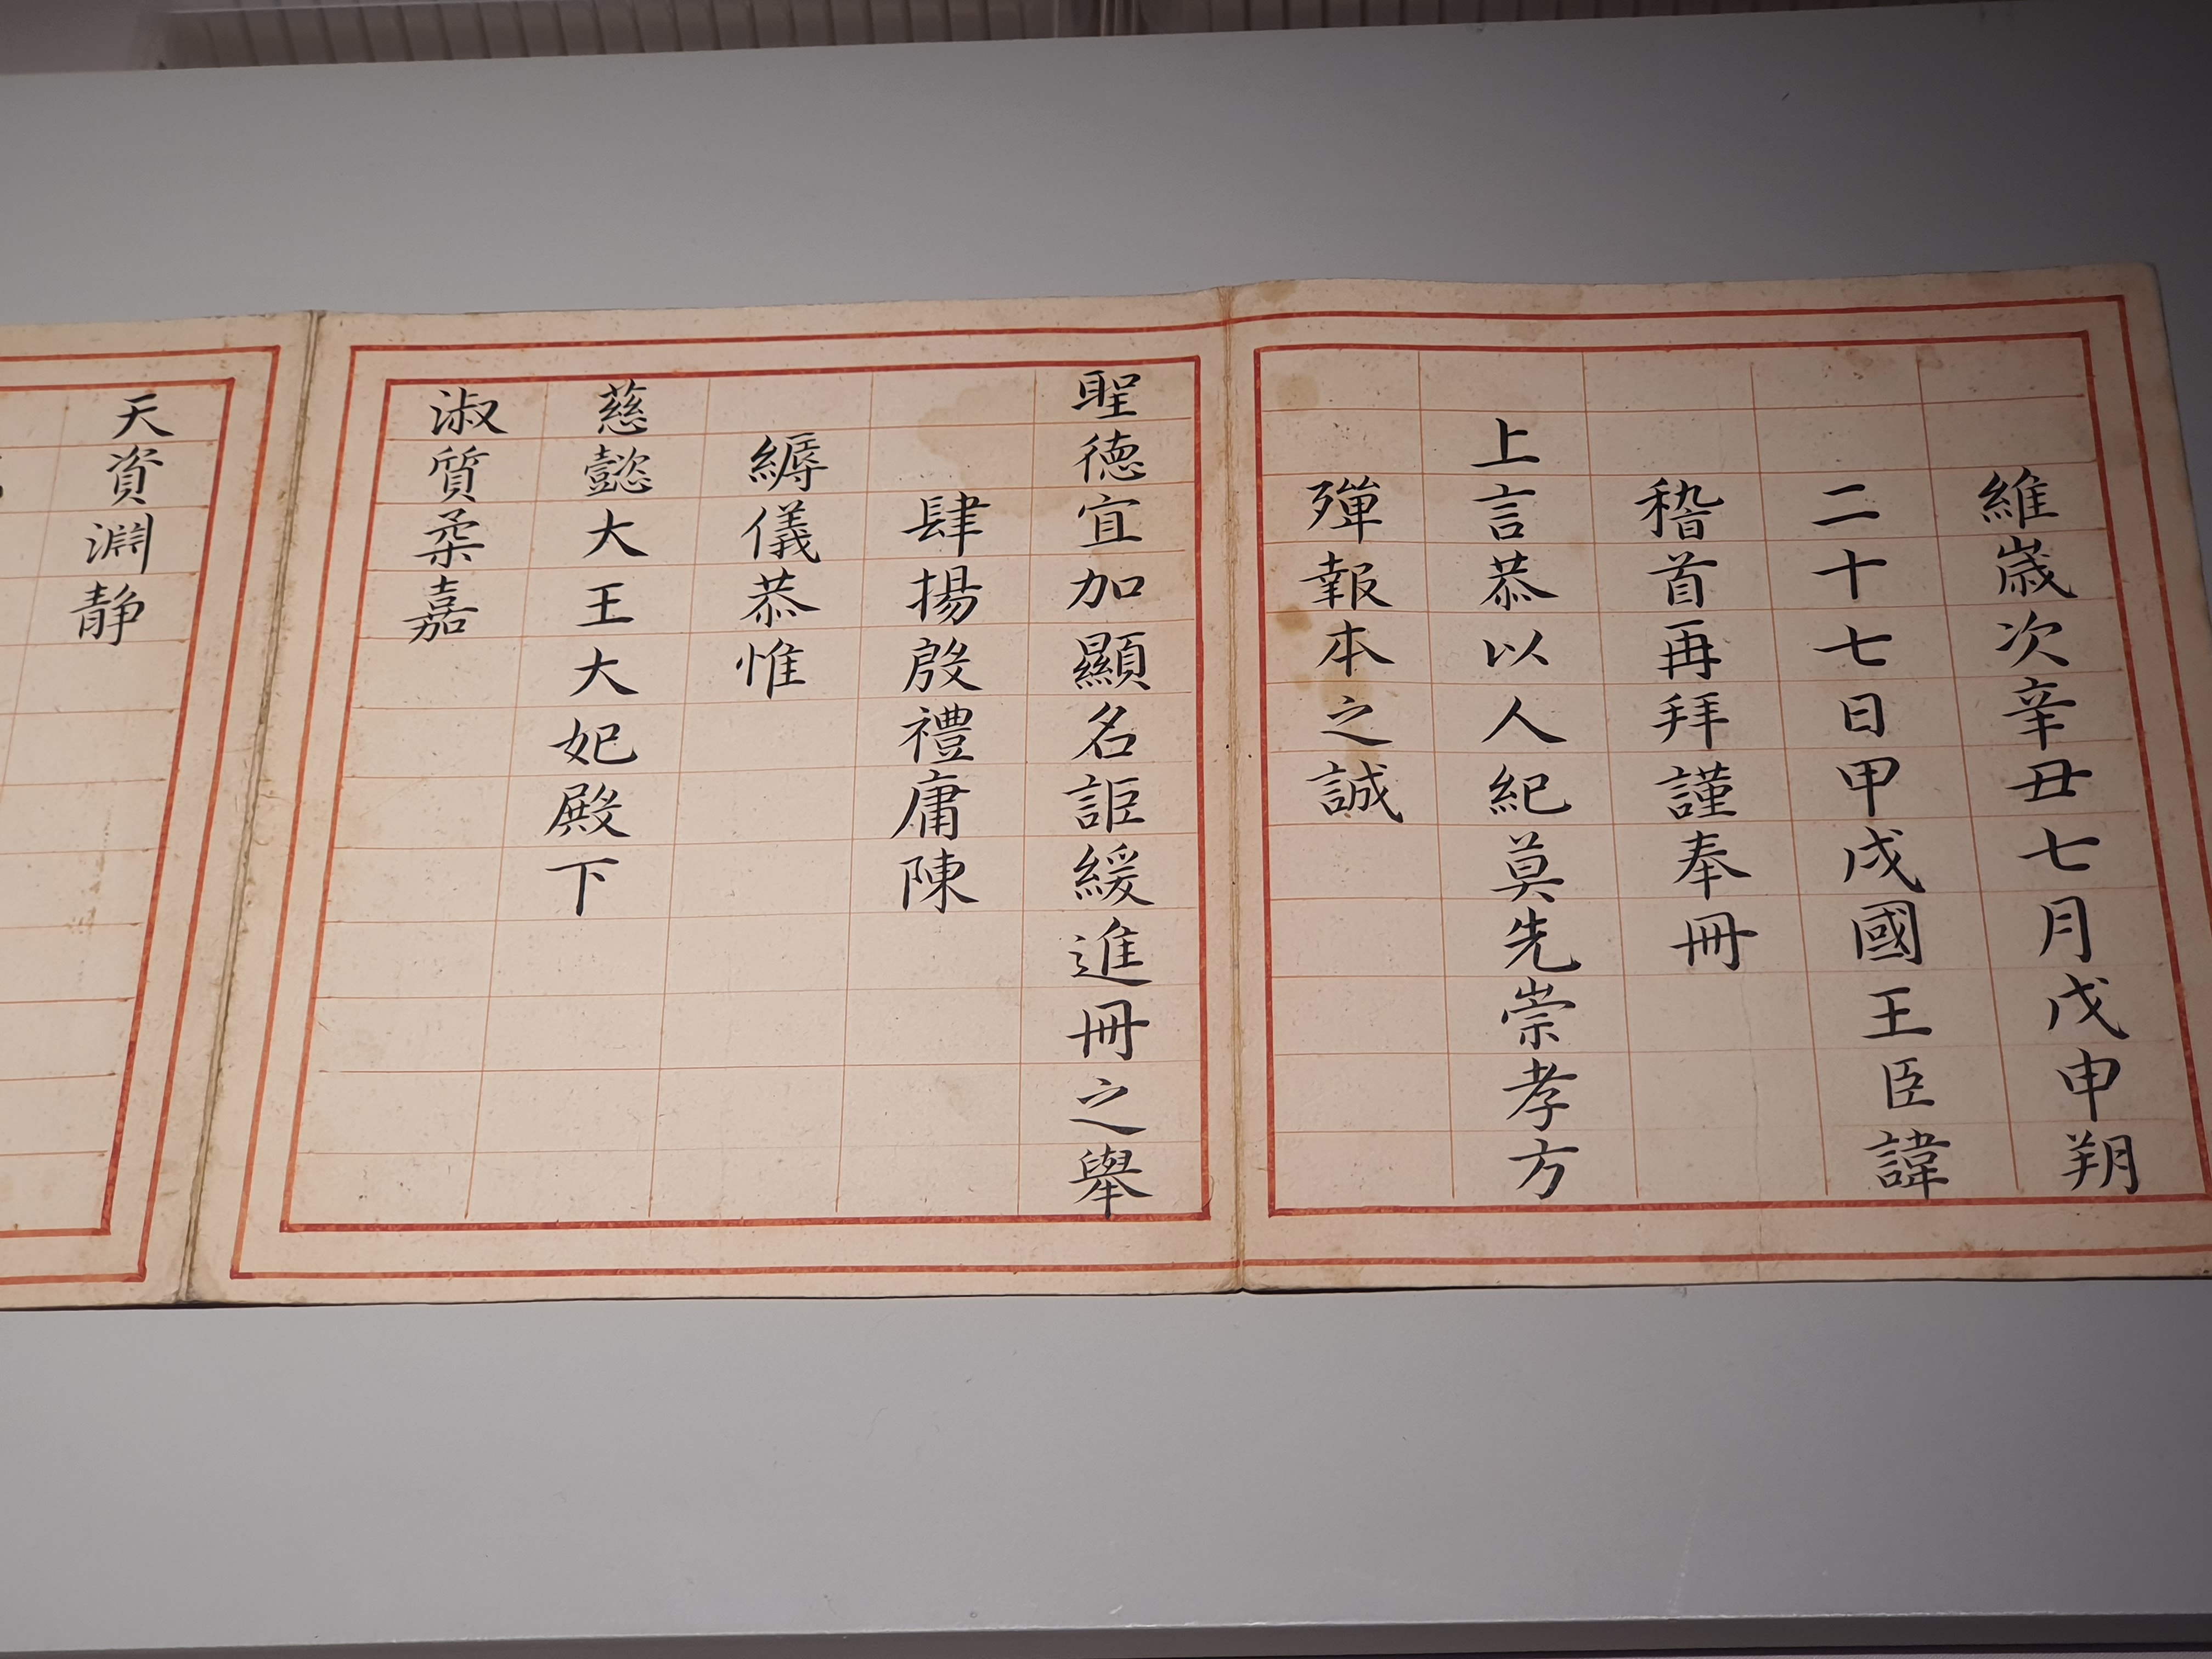 維歲次辛丑七月戊申朔
二十七日甲戌國王臣諱
稽首再拜謹奉冊
上言恭以人紀莫先崇孝方
殫報本之誠
聖德宜加顯名詎緩進冊之舉
肆揚殷禮庸陳
縟儀恭惟
慈懿大王大妃殿下
淑質柔嘉
天資淵靜